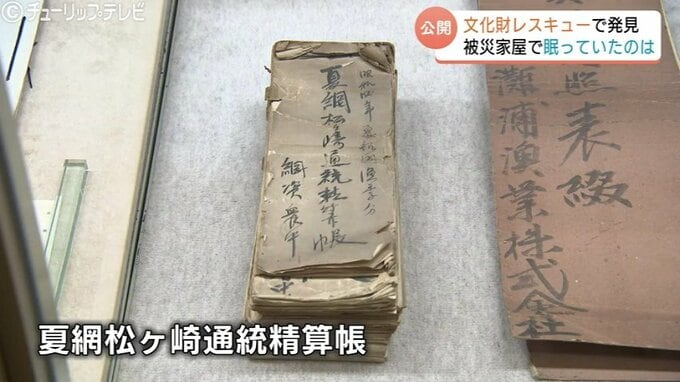 ©チューリップテレビ
公開
文化財レスキューで発見
被災家屋で眠っていたのは
夏網松ヶ崎通統精算帳
網濱農牛
照表綴
灘浦漁業株式会社
夏網松ヶ崎通統精算帳